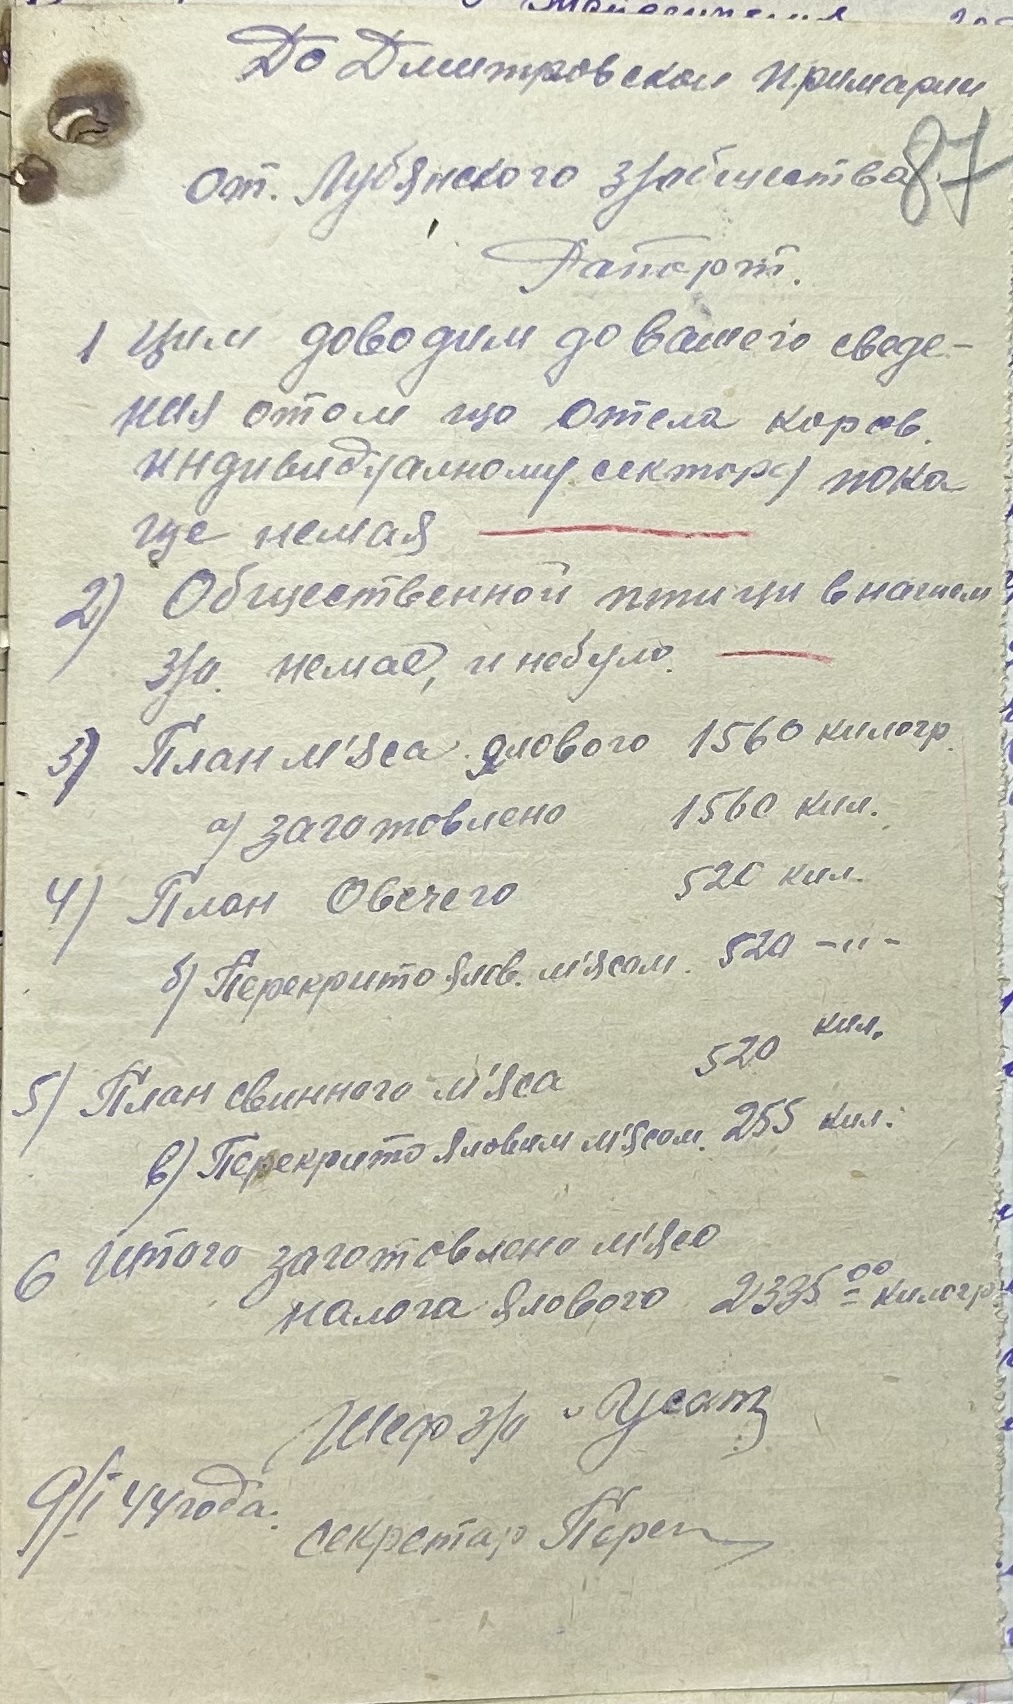 До Дмитровской примарии
87
от. Лубянского з/общества
Рапорт.
1 Цим доводим до вашего сведе-
ния отом що отела коров.
индивидуалному сектору пока
ще немая
2) Общественной птици в нашем
з/о. немає, и небуло.
3) План м'яса ялового 1560 килогр.
а) заготовлено 1560 кил.
4) План Овечего 520 кил.
б) Перекрито ялов. м'ясом. 520 -"-
5) План свинного м'яса 520 кил.
в) Перекрито яловим м'ясом. 255 кил.
6 Итого заготовлено м'ясо
налога ялового 2335 00 килогр.
Шеф з/о Усат, 
9/I 44 года.
секретар